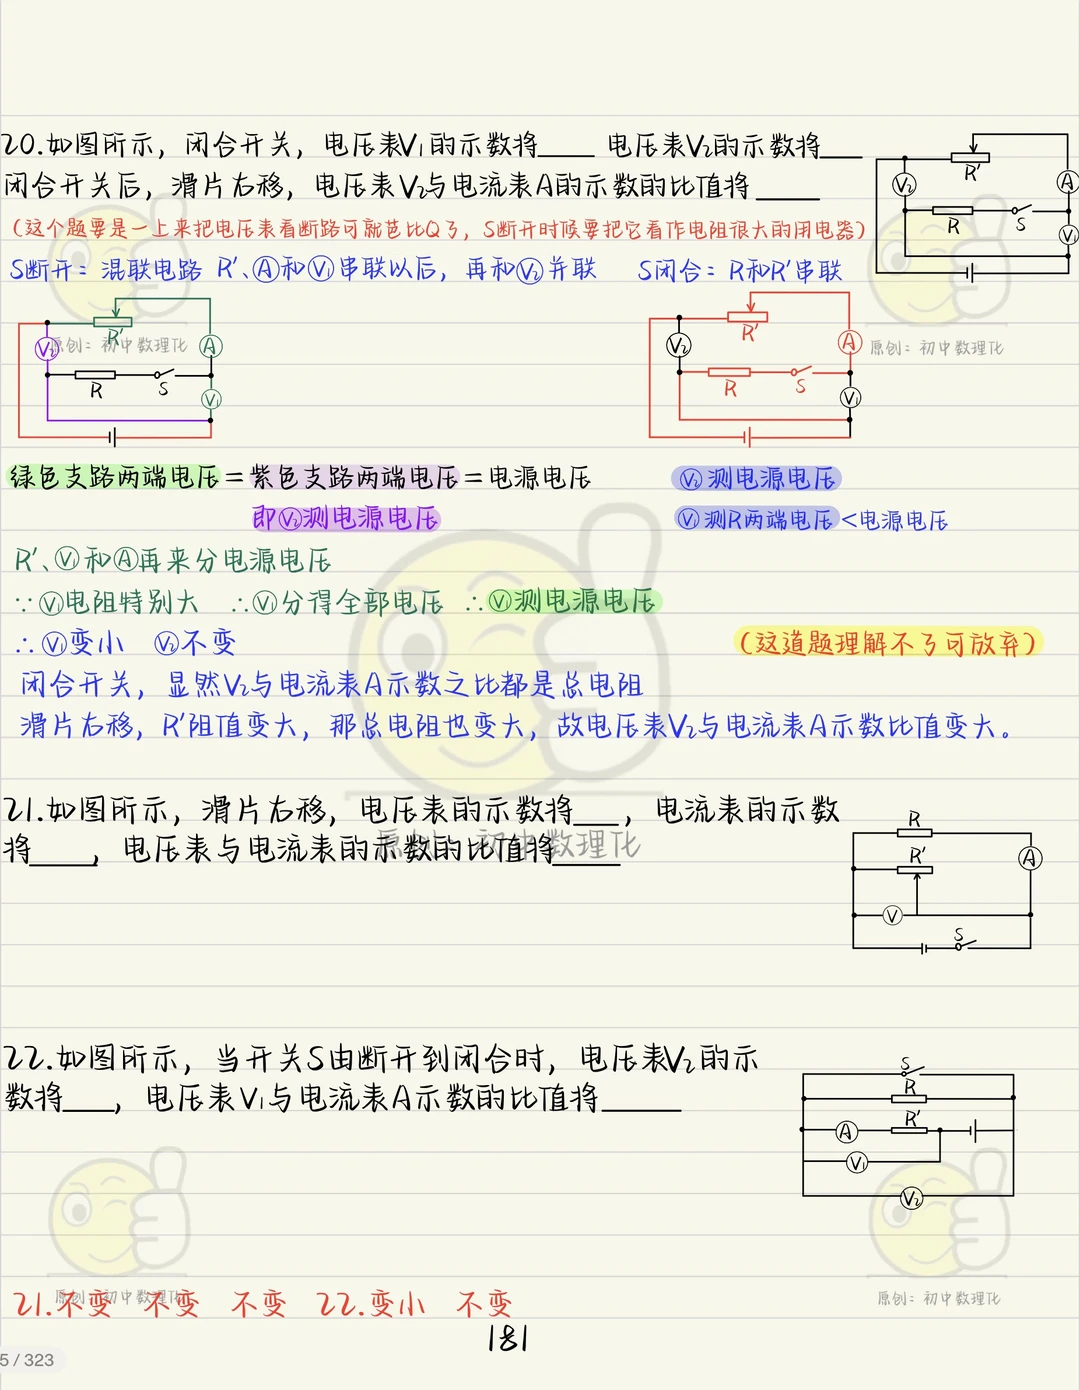 20.如图所示，闭合开关，电压表V₁的示数将____ 电压表V₂的示数将____
闭合开关后，滑片右移，电压表V₂与电流表A的示数的比值将____
（这个题要是一上来把电压表看断路可就芭比Q了，S断开时候要把它看作电阻很大的用电器）
S断开：混联电路 R′、Ⓐ和V₁串联以后，再和V₂并联 S闭合：R和R′串联
R′
V₂
A
R
S
V₁
R′
V₂
A
R
S
V₁
R′
V₂
A
R
S
V₁
原创：初中数理化
原创：初中数理化
绿色支路两端电压＝紫色支路两端电压＝电源电压
V₂测电源电压
即V₂测电源电压
V₁测R两端电压＜电源电压
R′、V₁和Ⓐ再来分电源电压
∵V₁电阻特别大 ∴V₁分得全部电压 ∴V₁测电源电压
∴V₁变小 V₂不变
（这道题理解不了可放弃）
闭合开关，显然V₂与电流表A示数之比都是总电阻
滑片右移，R′阻值变大，那总电阻也变大，故电压表V₂与电流表A示数比值变大。
21.如图所示，滑片右移，电压表的示数将____，电流表的示数
将____，电压表与电流表的示数的比值将____
原创：初中数理化
R
R′
A
V
S
22.如图所示，当开关S由断开到闭合时，电压表V₂的示
数将____，电压表V₁与电流表A示数的比值将____
S
R
A
R′
V₁
V₂
原创：初中数理化
原创：初中数理化
21.不变 不变 不变 22.变小 不变
181
5 / 323